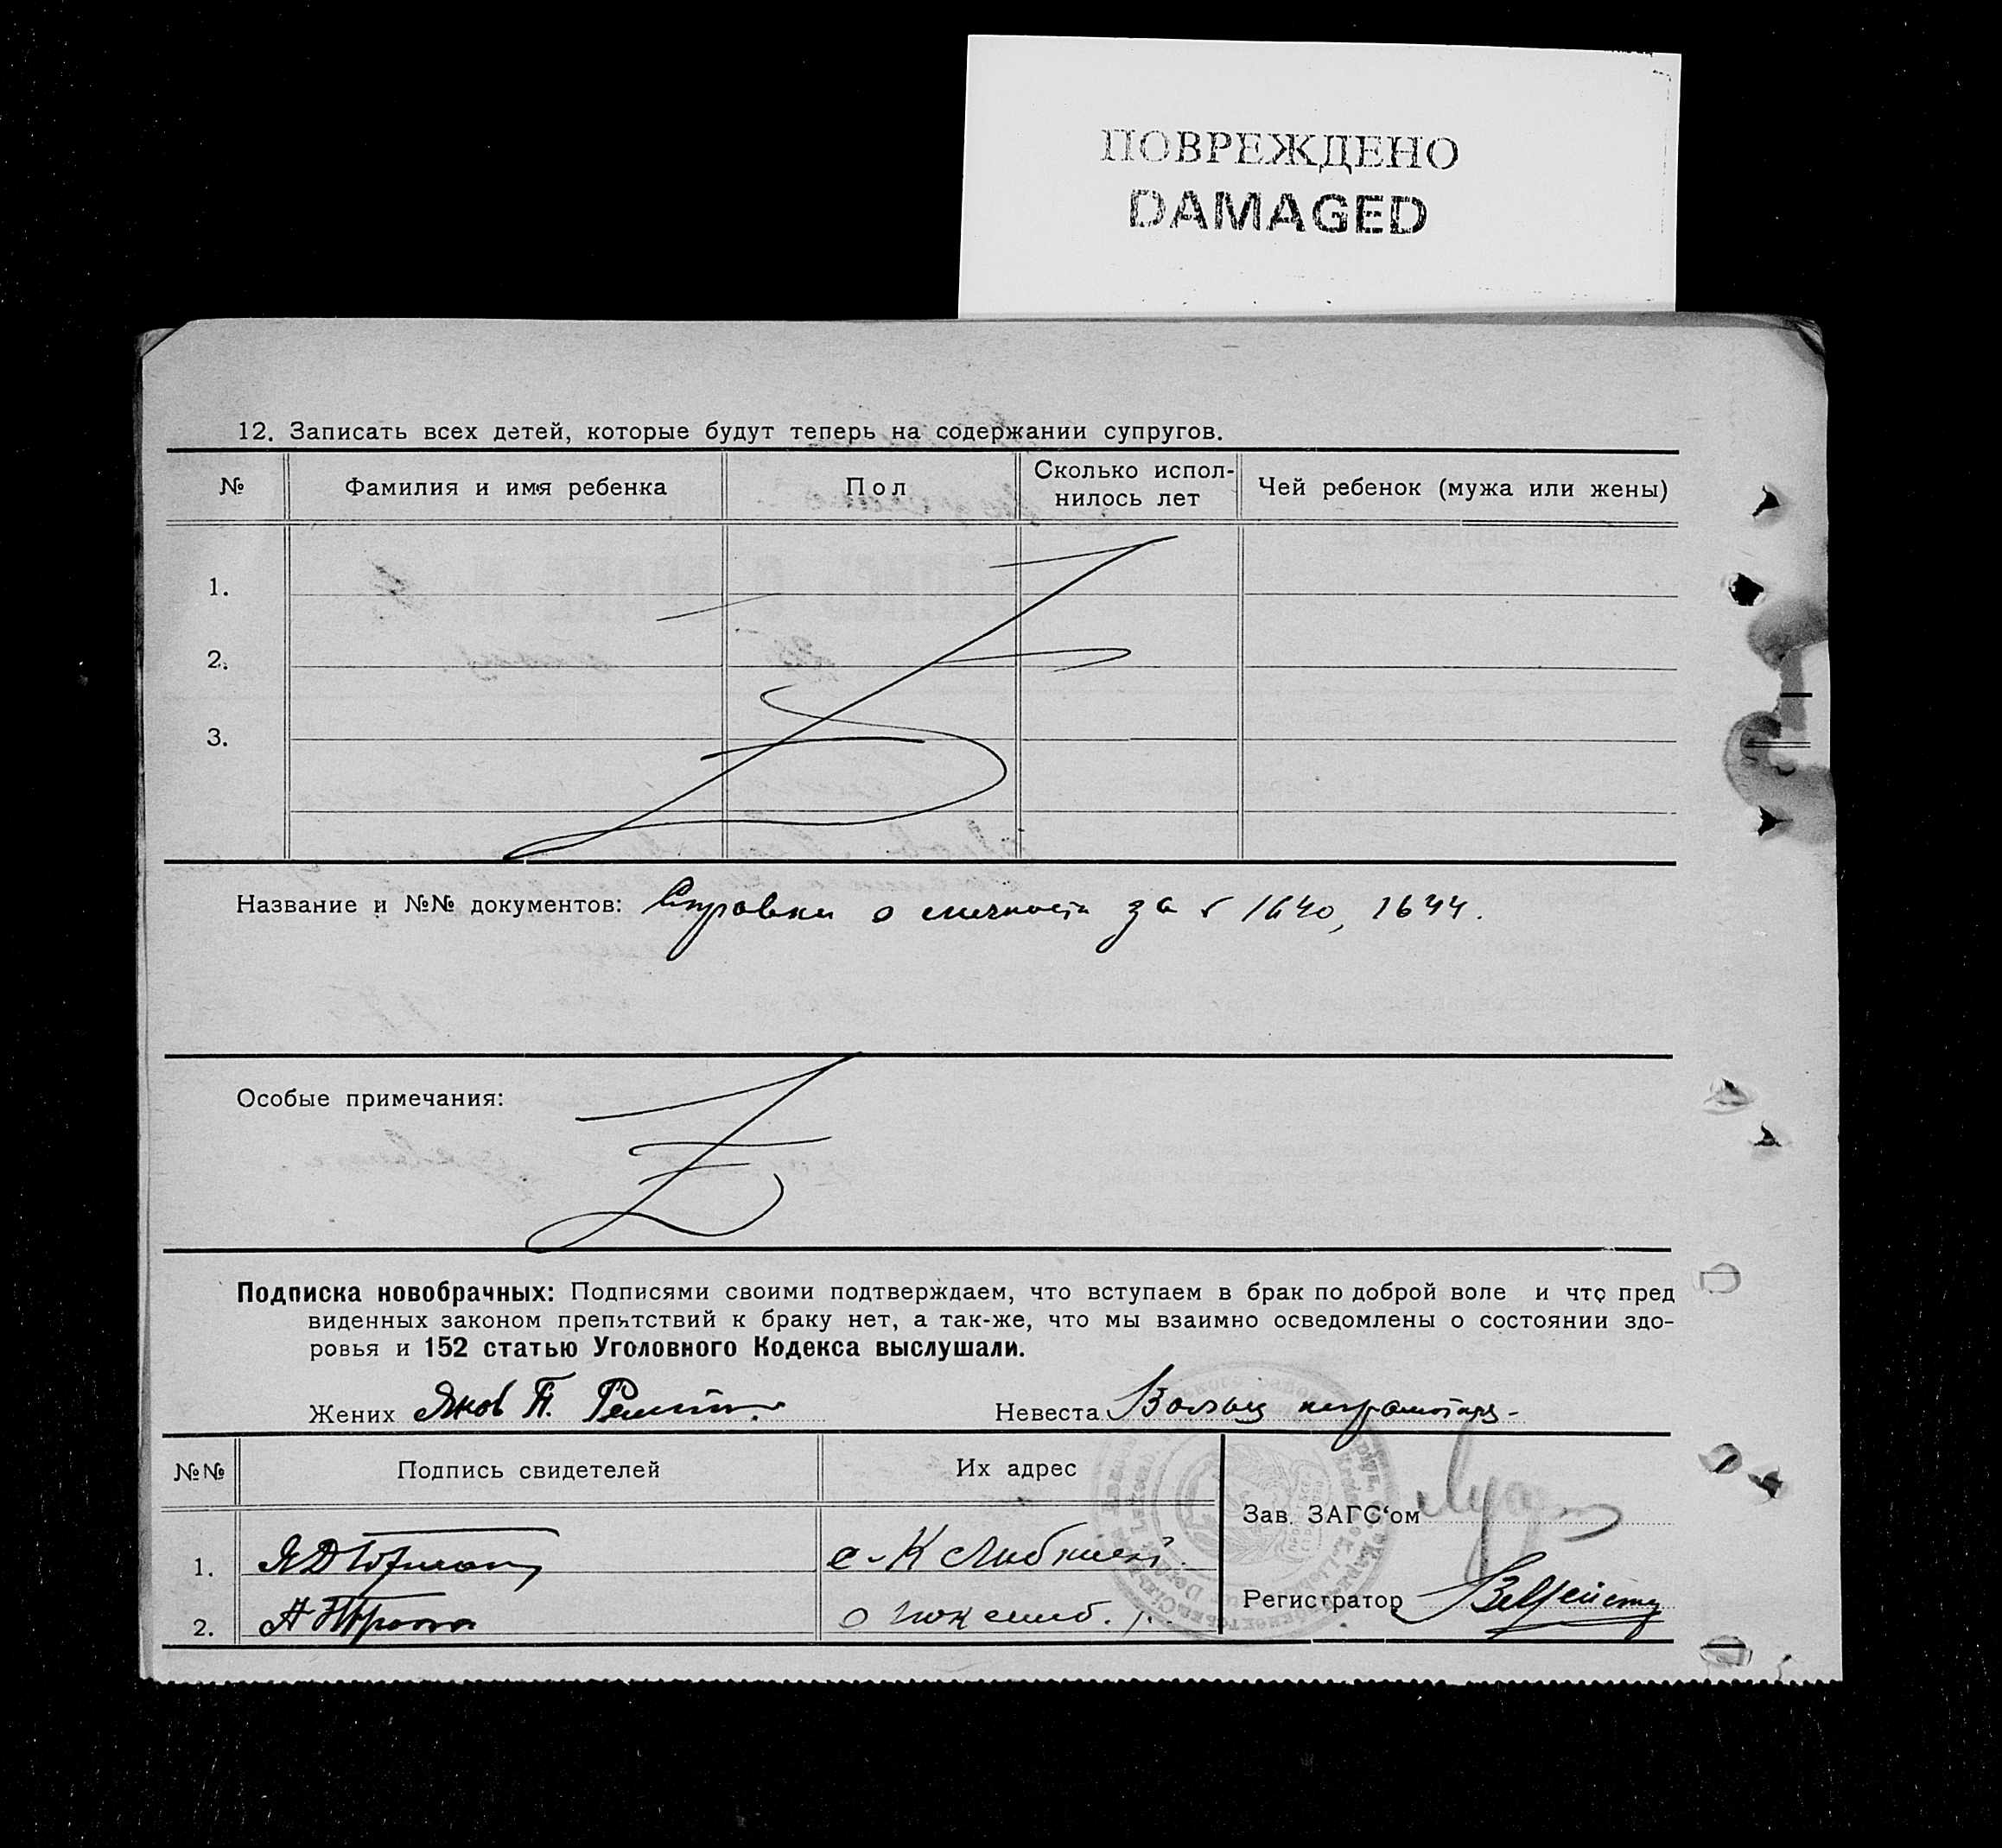 ПОВРЕЖДЕНО
DAMAGED
12. Записать всех детей, которые будут теперь на содержании супругов.
№ Фамилия и имя ребенка Пол Сколько испол-нилось лет Чей ребенок (мужа или жены)
1.
2.
3.
Название и №№ документов: Справки о личности за № 1640, 1644.
Особые примечания:
Подписка новобрачных: Подписями своими подтверждаем, что вступаем в брак по доброй воле и что пред
виденных законом препятствий к браку нет, а так-же, что мы взаимно осведомлены о состоянии здо-
ровья и 152 статью Уголовного Кодекса выслушали.
Жених Яков П. Невеста неграмотна
№№ Подпись свидетелей Их адрес
Зав. ЗАГС‘ом
1. с. К Либкнехт
Регистратор
2.